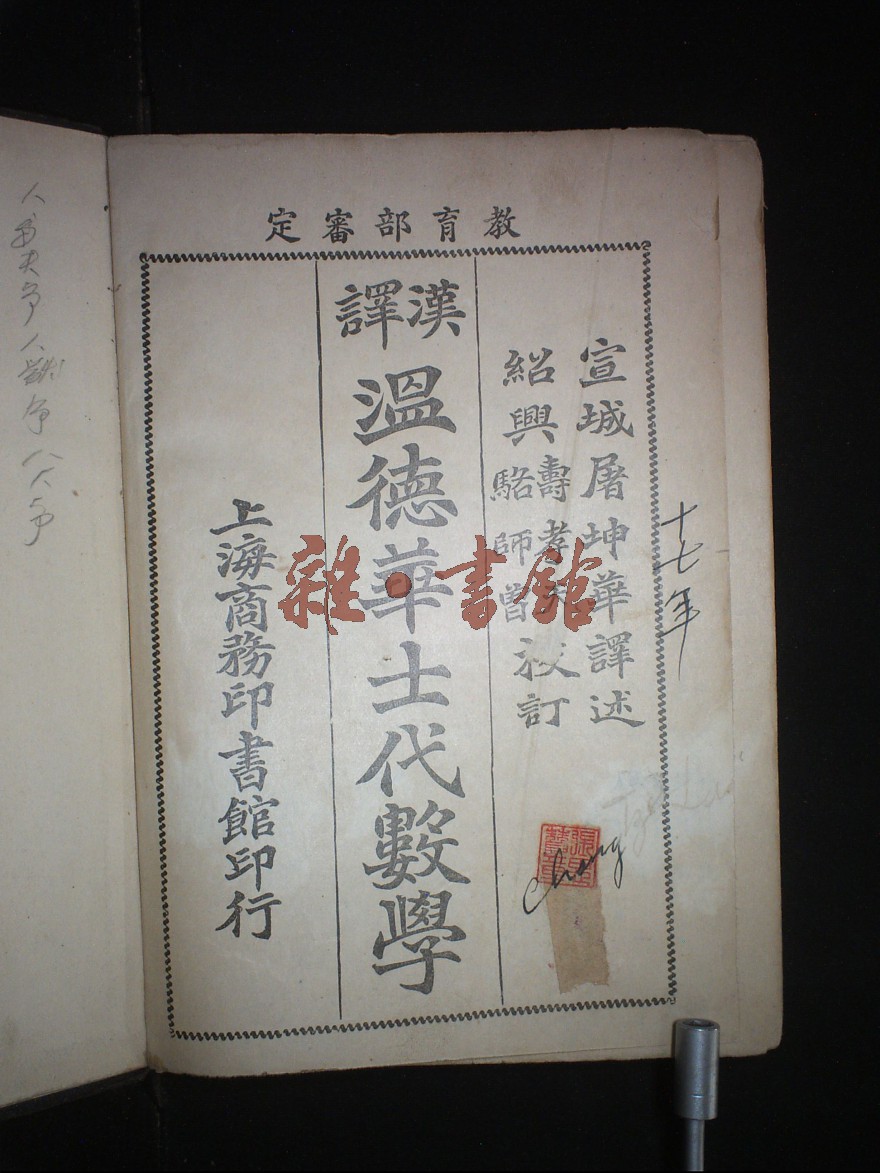 教育部審定
宣城屠坤華譯述
紹興壽孝天
駱師曾校訂
漢譯
溫德華士代數學
上海商務印書館印行
十七年
chang
雜•書館